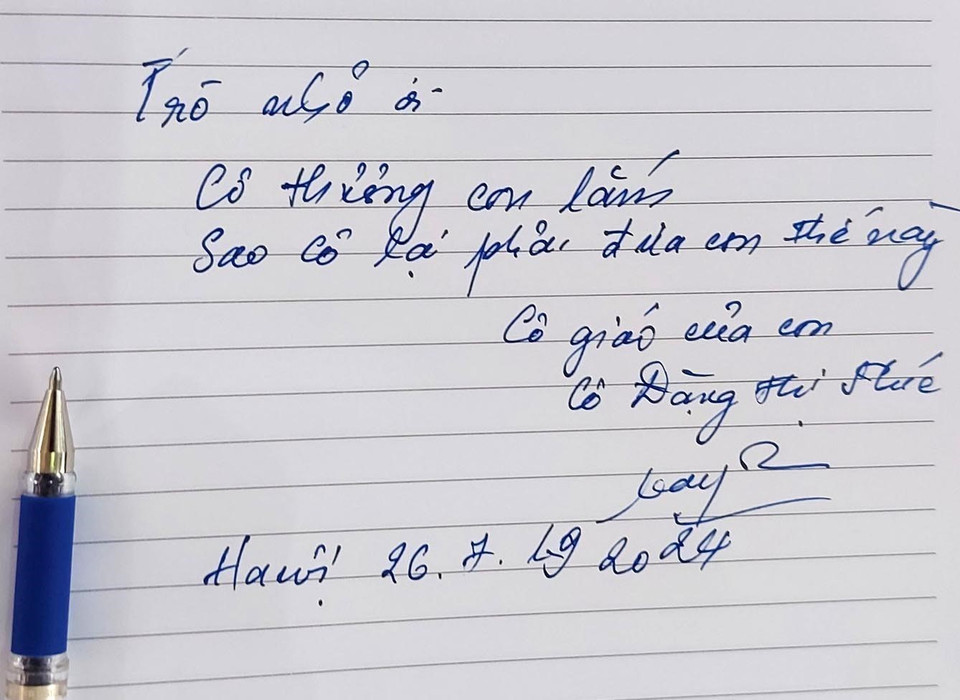 Trò nhỏ ơi
Cô thương con lắm
Sao cô lại phải đưa con thế này
Cô giáo của con
Cô Đặng Thị Phúc
Hà Nội 26.7.19 2024